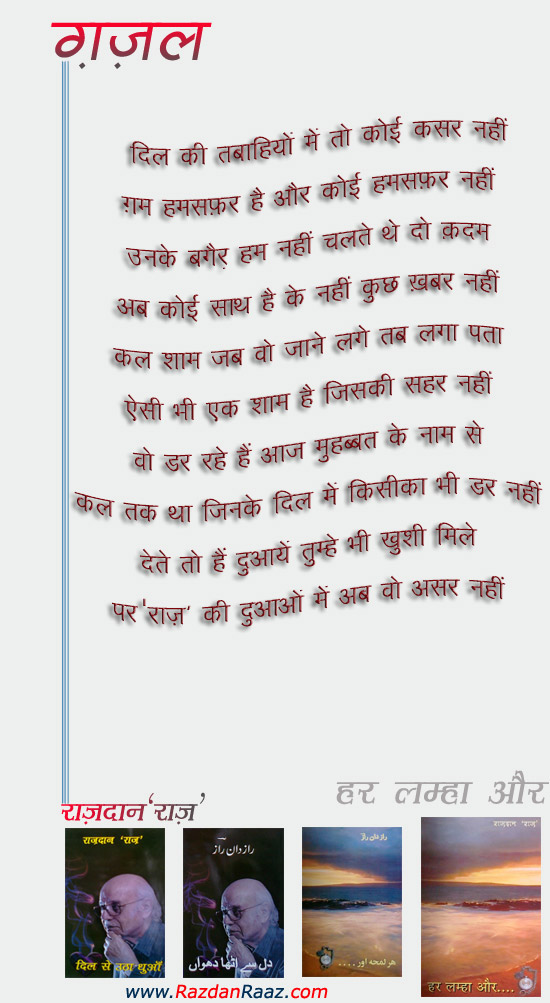 ग़ज़ल
दिल की तबाहियों में तो कोई कसर नहीं
ग़म हमसफ़र है और कोई हमसफ़र नहीं
उनके बगैर हम नहीं चलते थे दो क़दम
अब कोई साथ है के नहीं कुछ ख़बर नहीं
कल शाम जब वो जाने लगे तब लगा पता
ऐसी भी एक शाम है जिसकी सहर नहीं
वो डर रहे हैं आज मुहब्बत के नाम से
कल तक था जिनके दिल में किसीका भी डर नहीं
देते तो हैं दुआयें तुम्हे भी खुशी मिले
पर 'राज़' की दुआओं में अब वो असर नहीं
हर लम्हा और
राज़दान 'राज़'
राज़दान 'राज़'
दिल से उठा धुआँ
راز دان راز
دل سے اٹھا دھواں
راز دان راز
ہر لمحہ اور....
राज़दान 'राज़'
हर लम्हा और....
www.RazdanRaaz.com